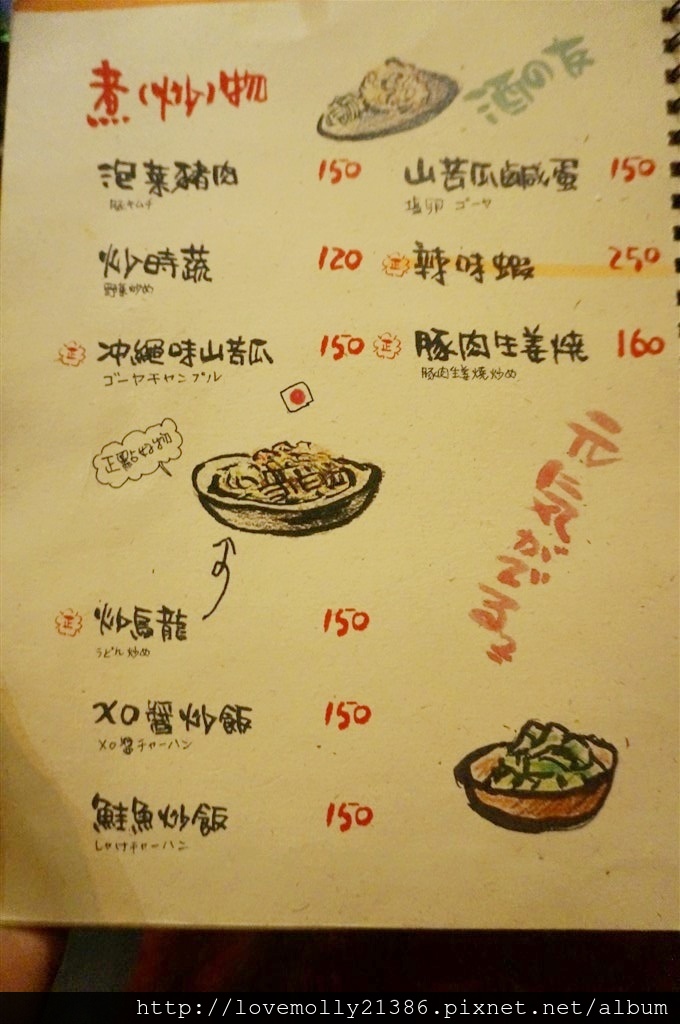 煮(炒)物
酒の友
泡菜豬肉 150
豚キムチ
山苦瓜鹹蛋 150
塩卵 ゴーヤ
炒時蔬 120
野菜炒め
正 辣味蝦 250
正 沖繩味山苦瓜 150
ゴーヤチャンプル
正 豚肉生姜燒 160
豚肉生姜燒炒め
正點好物
元気がでる
正 炒烏龍 150
うどん炒め
XO醬炒飯 150
XO醬チャーハン
鮭魚炒飯 150
しゃけチャーハン
http://lovemolly21386.pixnet.net/album